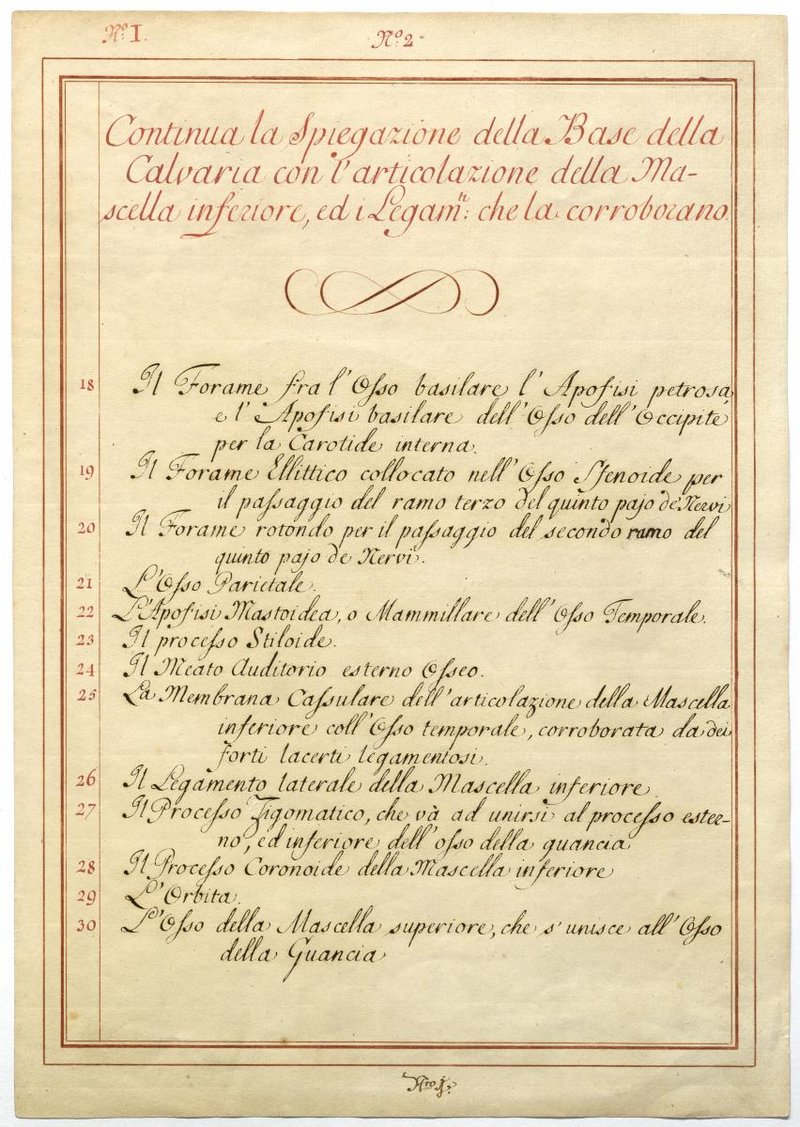 Nº. I.
Nº. 2
Continua la Spiegazione della Base della
Calvaria con l'articolazione della Ma-
scella inferiore, ed i Legam.ti che la corroborano
18 Il Forame fra l'Osso basilare l'Apofisi petrosa,
e l'Apofisi basilare dell'Osso dell'Occipite
per la Carotide interna.
19 Il Forame Ellittico collocato nell'Osso Sfenoide per
il passaggio del ramo terzo del quinto pajo de Nervi
20 Il Forame rotondo per il passaggio del secondo ramo del
quinto pajo de Nervi.
21 L'Osso Parietale.
22 L'Apofisi Mastoidea, o Mammillare dell'Osso Temporale.
23 Il processo Stiloide.
24 Il Meato Auditorio esterno Osseo.
25 La Membrana Cassulare dell'articolazione della Mascella
inferiore coll'Osso temporale, corroborata da dei
forti lacerti legamentosi.
26 Il Legamento laterale della Mascella inferiore.
27 Il Processo Zigomatico, che và ad unirsi al processo ester-
no, ed inferiore dell'osso della guancia
28 Il Processo Coronoide della Mascella inferiore
29 L'Orbita.
30 L'Osso della Mascella superiore, che s'unisce all'Osso
della Guancia